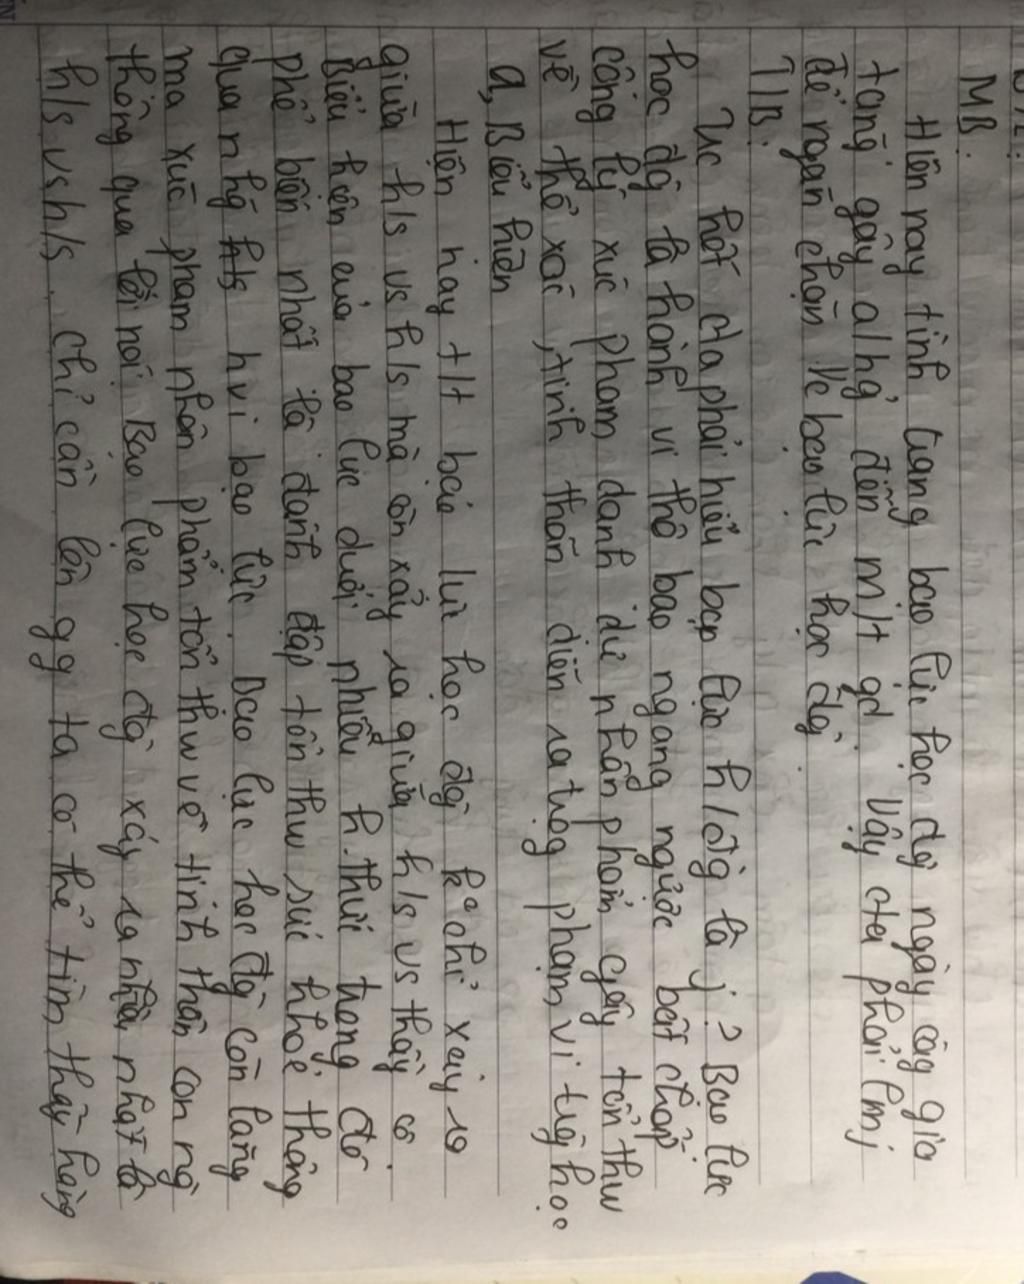 MB:
Hiện nay tình trạng bạo lực học đg ngày càng gia
tăng gây a/hg đến m/t gd. Vậy cta phải lmj
để ngăn chặn vc bạo lực học đg.
TB:
Trc hết cta phải hiểu bạo lực h/đg là j? Bạo lực
học đg là hành vi thô bạo ngang ngược bất chấp
công lý xúc phạm danh dự nhân phẩm gây tổn thw
về thể xác, tinh thần diễn ra trog phạm vi trg học
a, Biểu hiện
Hiện nay t/t bạo lực học đg k° chỉ xảy ra
giữa h/s vs h/s mà còn xảy ra giữa h/s vs thầy cô.
Biểu hiện của bạo lực dưới nhiều h.thức trong đó
phổ biến nhất là đánh đập tổn thw sức khoẻ thông
qua nhg hvi bạo lực. Bạo lực học đg còn làng
mạ xúc phạm nhân phẩm tổn thw về tinh thần con ng
thông qua lời nói. Bạo lực học đg xảy ra nhất là
h/s vs h/s. Chỉ cần lên gg ta có thể tìm thấy hàng